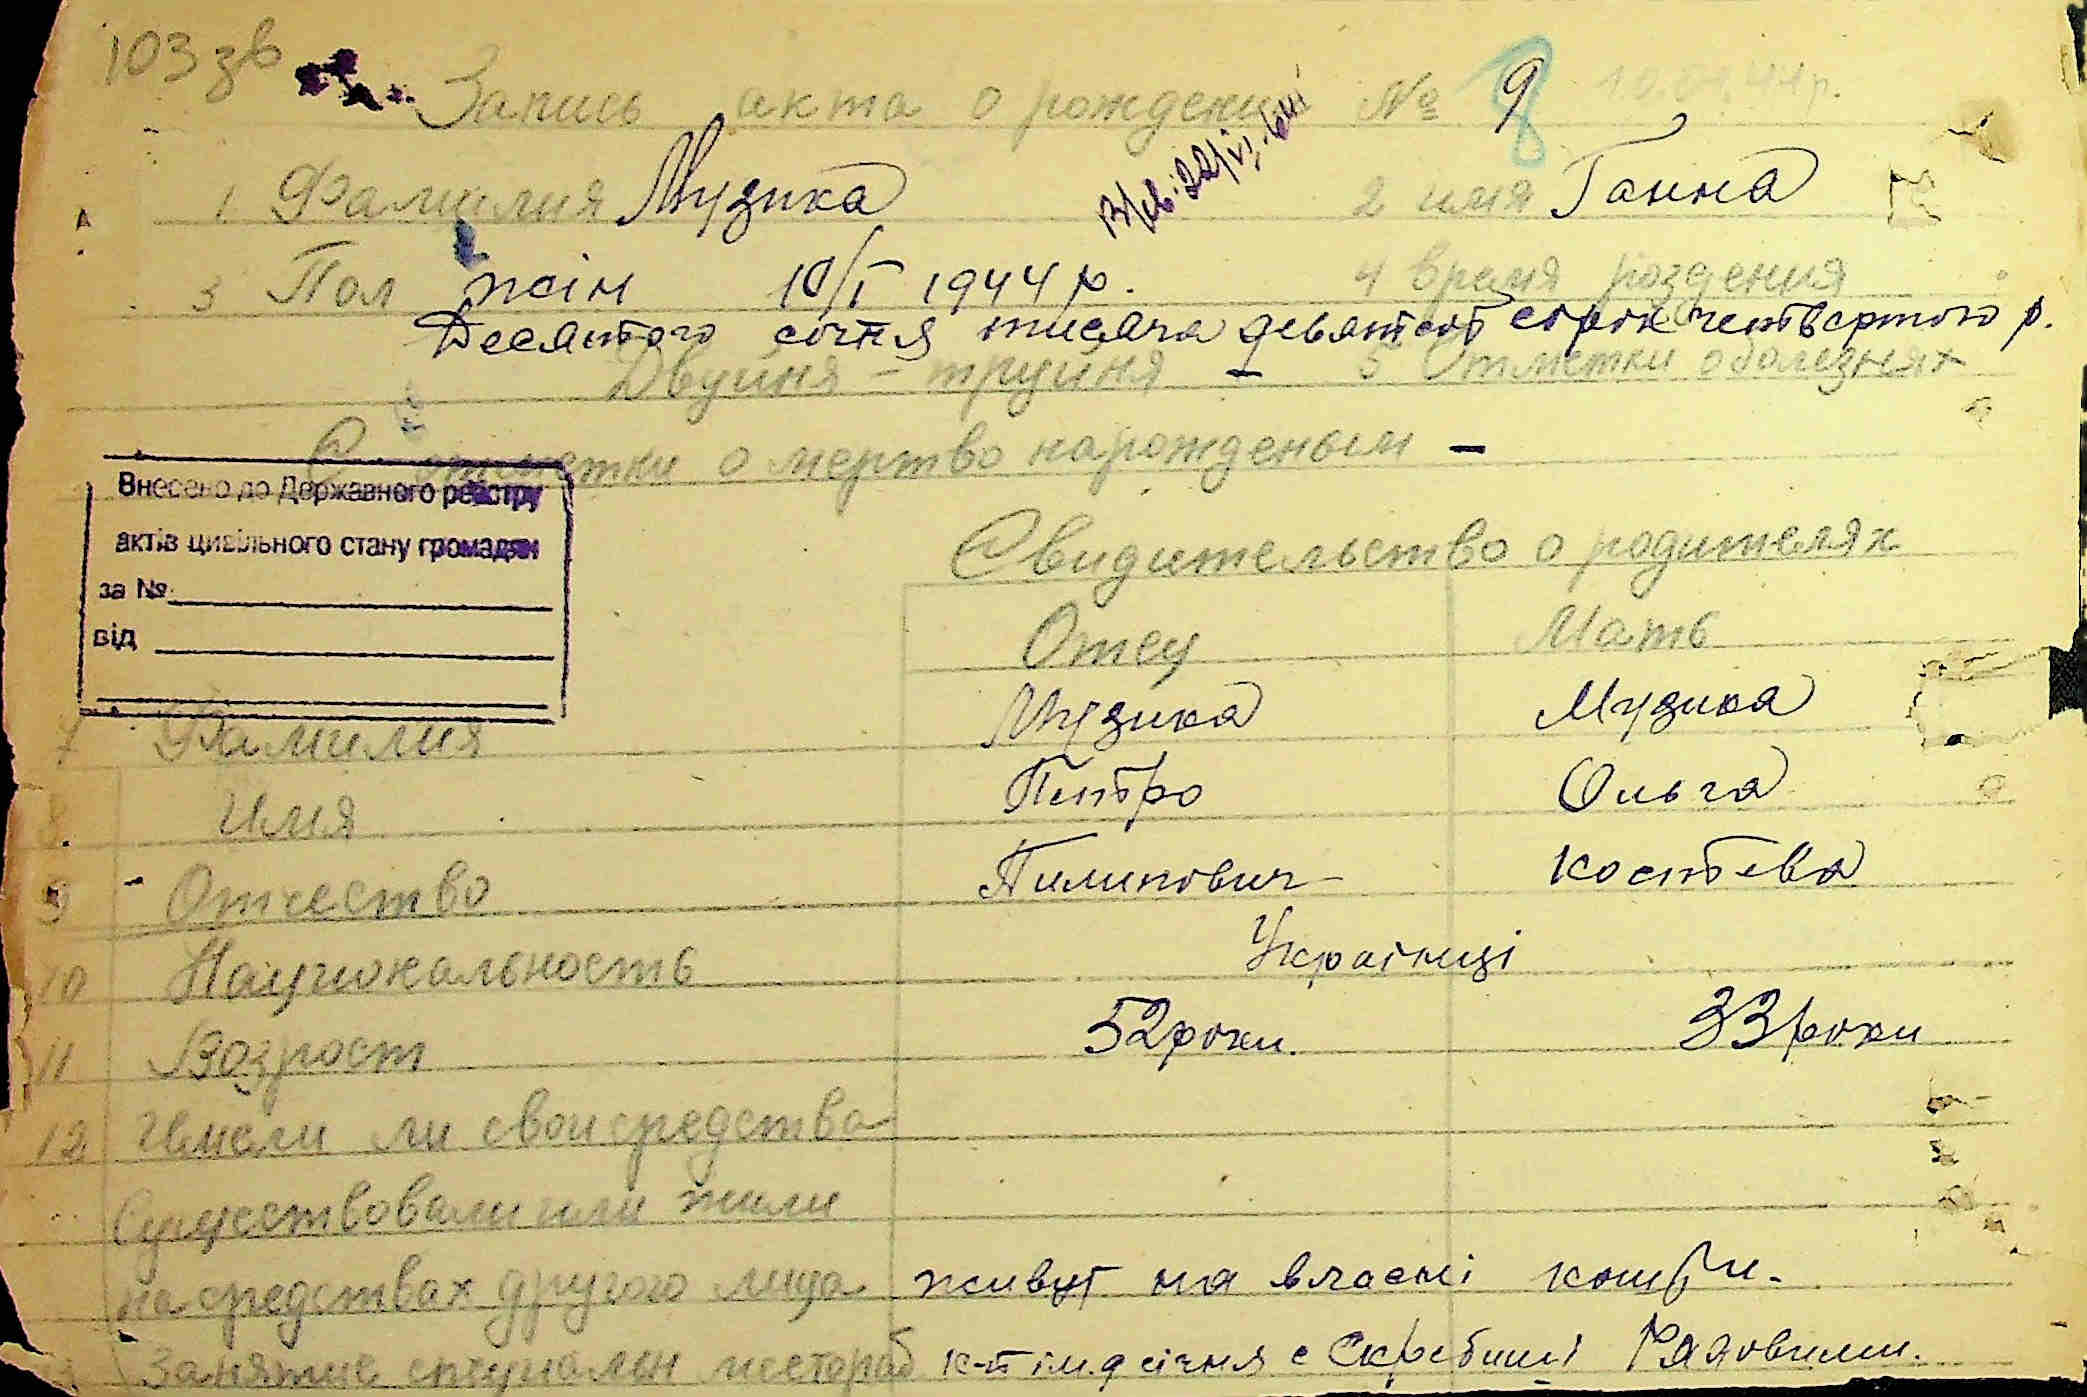 103 зв
Запись акта о рождении № 9 10.01.44 р.
1 Фамилия Музика 2 имя Ганна
3 Пол жін 10/I 1944 р. 4 время рождения
Десятого січня тисяча девятсот сорок четвертого р.
Двуйня - труйня - 5 Отметки о болезнях
6 отметки о мертво нарожденым -
Внесено до Державного реєстру
актів цивільного стану громадян
за №
від
Свидительство о родителях
Отец Мать
7 Фамилия Музика Музика
8. Имя Петро Ольга
9 Отчество Пилипович Костева
10 Национальность Українці
11 Возрост 52 роки. 33 роки
12 Имели ли свои средства
Существовали или жили
на средствах другого лица живут на власні кошти.
Занятие специальн местораб к-п ім. 9 січня с Скребиші Рядовими.